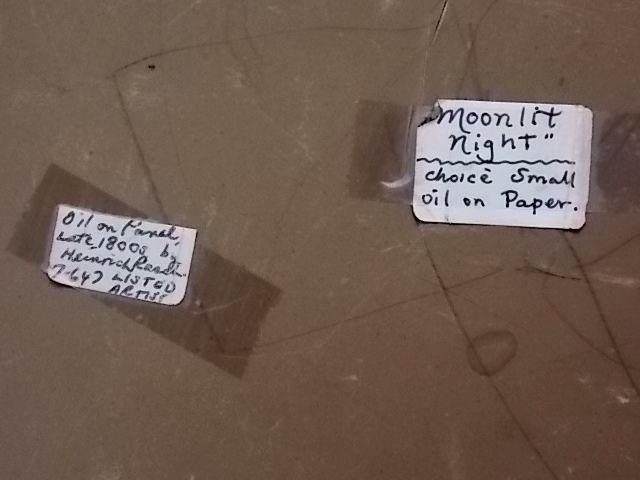 Oil on Panel,
Late 1800s by
Heinrich
7-647 LISTED
ARTIST
"Moonlit
Night"
choice Small
oil on Paper.